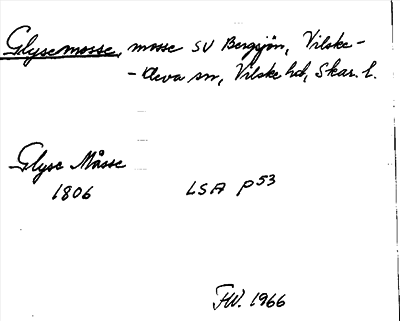 Glysemosse, mosse SV Bergsjön, Vilske-
- Kleva sn, Vilske hd, Skar. l.
Glyse Måsse
1806
LSA P53
FW. 1966